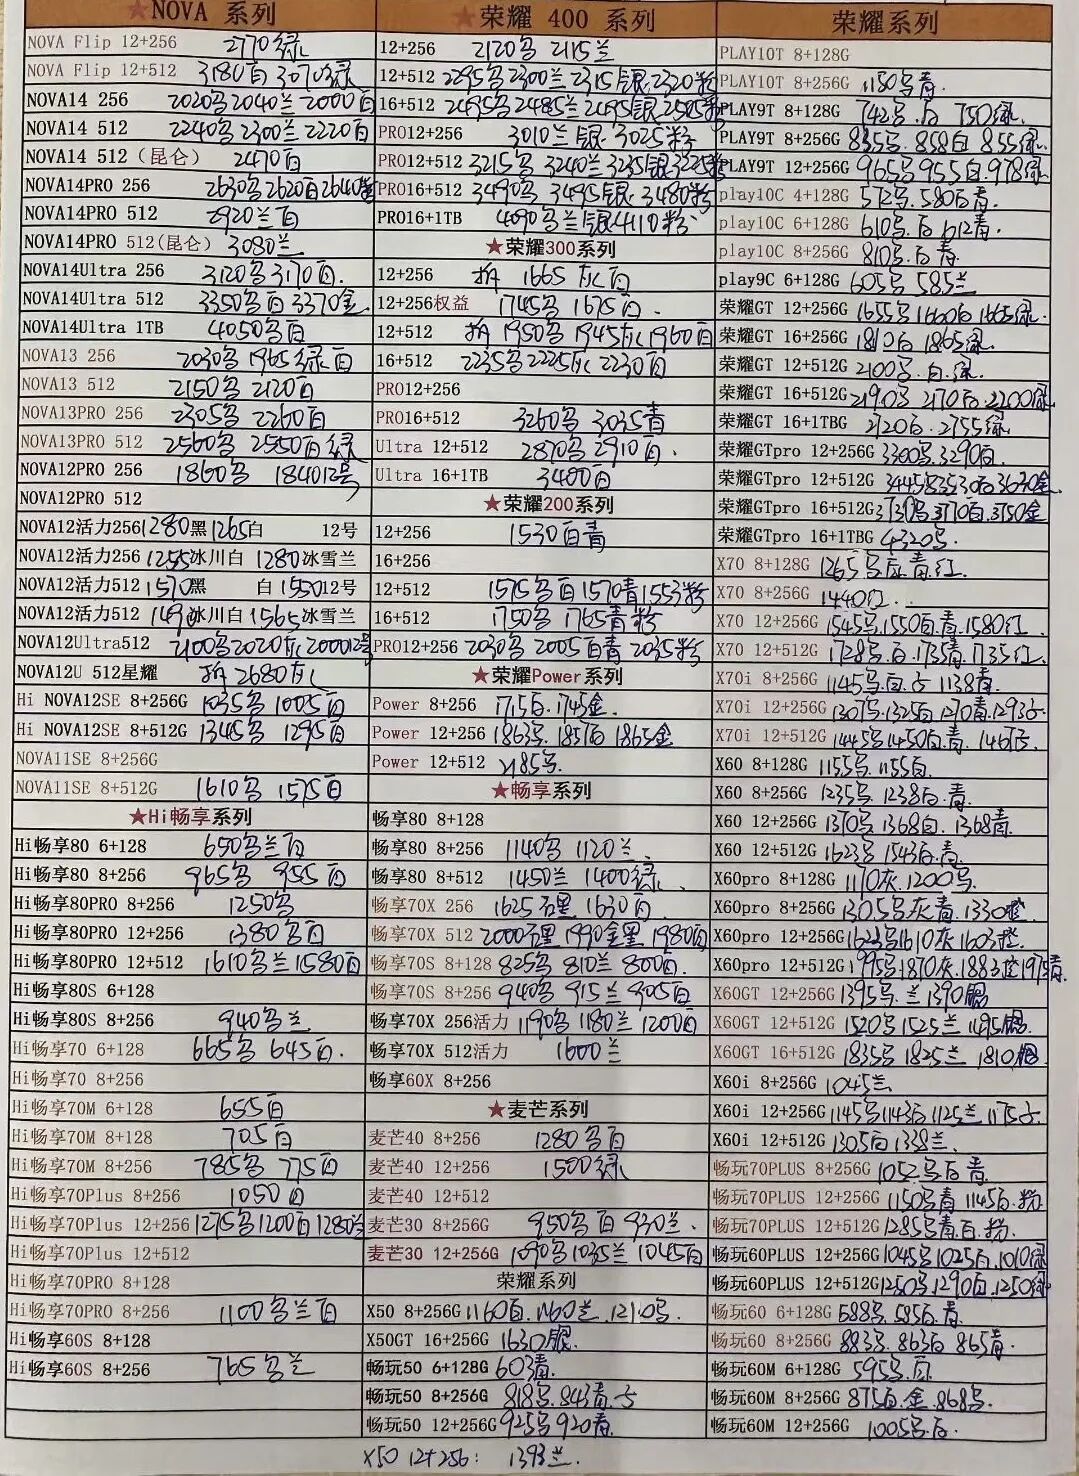 ★NOVA 系列
NOVA Flip 12+256 2770绿
NOVA Flip 12+512 3180白 3070绿
NOVA14 256 2020 2040兰 2000白
NOVA14 512 2240 2300兰 2220白
NOVA14 512(昆仑) 2470白
NOVA14PRO 256 2630 2620白 2640
NOVA14PRO 512 2920兰白
NOVA14PRO 512(昆仑) 3080兰
NOVA14Ultra 256 3120 3170白
NOVA14Ultra 512 3350 白 3370金
NOVA14Ultra 1TB 4050 白
NOVA13 256 2030 1965绿白
NOVA13 512 2150 2120白
NOVA13PRO 256 2305 2260白
NOVA13PRO 512 2560 2550白绿
NOVA12PRO 256 1860 1840 12号
NOVA12PRO 512
NOVA12活力256 1280黑 1265白 12号
NOVA12活力256 1255冰川白 1280冰雪兰
NOVA12活力512 1570黑 白 1550 12号
NOVA12活力512 1490冰川白 1565冰雪兰
NOVA12Ultra512 2100 2020灰 2000 12号
NOVA12U 512星耀 2680灰
Hi NOVA12SE 8+256G 1035 1005白
Hi NOVA12SE 8+512G 1345 1295白
NOVA11SE 8+256G
NOVA11SE 8+512G 1610 1575白
★Hi畅享系列
Hi畅享80 6+128 650 兰白
Hi畅享80 8+256 965 955白
Hi畅享80PRO 8+256 1250
Hi畅享80PRO 12+256 1380 白
Hi畅享80PRO 12+512 1610 兰 1580白
Hi畅享80S 6+128
Hi畅享80S 8+256 940 兰
Hi畅享70 6+128 665 645白
Hi畅享70 8+256
Hi畅享70M 6+128 655白
Hi畅享70M 8+128 705白
Hi畅享70M 8+256 785 775白
Hi畅享70Plus 8+256 1050白
Hi畅享70Plus 12+256 1275 1200白 1280兰
Hi畅享70Plus 12+512
Hi畅享70PRO 8+128
Hi畅享70PRO 8+256 1100 兰白
Hi畅享60S 8+128
Hi畅享60S 8+256 765 兰
★荣耀 400 系列
12+256 2120 2115兰
12+512 2295 2300兰 2315银 2320粉
16+512 2495 2485兰 2495银 2505粉
PRO12+256 3010兰银 3025粉
PRO12+512 3215 3240兰 3235银 3225粉
PRO16+512 3490 3495银 3480粉
PRO16+1TB 4090 兰银 4110粉
★荣耀300系列
12+256 1665灰白
12+256权益 1745 1675白
12+512 1950 1945灰 1960白
16+512 2235 2225灰 2230白
PRO12+256
PRO16+512 3260 3035青
Ultra 12+512 2870 2910白
Ultra 16+1TB 3400白
★荣耀200系列
12+256 1530白青
16+256
12+512 1575 白 1570青 1553粉
16+512 1750 1765青粉
PRO12+256 2030 2005白青 2035粉
★荣耀Power系列
Power 8+256 1715白 1745金
Power 12+256 1863 1857白 1865金
Power 12+512 2185
★畅享系列
畅享80 8+128
畅享80 8+256 1140 1120兰
畅享80 8+512 1450兰 1400绿
畅享70X 256 1625 黑 1630白
畅享70X 512 2000 黑 1990金黑 1980白
畅享70S 8+128 825 810兰 800白
畅享70S 8+256 940 915兰 905白
畅享70X 256活力 1190 1180兰 1200白
畅享70X 512活力 1600兰
畅享60X 8+256
★麦芒系列
麦芒40 8+256 1280 白
麦芒40 12+256 1500绿
麦芒40 12+512
麦芒30 8+256G 950 白 930兰
麦芒30 12+256G 1090 1035兰 1045白
荣耀系列
X50 8+256G 1160白 1160兰 1210
X50GT 16+256G 1630银
畅玩50 6+128G 603青
畅玩50 8+256G 818 843青
畅玩50 12+256G 925 920青
X50 12+256: 1393兰
★荣耀系列
PLAY10T 8+128G
PLAY10T 8+256G 1150 青
PLAY9T 8+128G 742 白 750绿
PLAY9T 8+256G 835 858白 855绿
PLAY9T 12+256G 965 955白 978绿
play10C 4+128G 572 580白青
play10C 6+128G 610 白 612青
play10C 8+256G 810 白青
play9C 6+128G 605 585兰
荣耀GT 12+256G 1655 1660白 1665绿
荣耀GT 16+256G 1810白 1865绿
荣耀GT 12+512G 2100 白绿
荣耀GT 16+512G 2190 2170白 2200绿
荣耀GT 16+1TBG 2720白 2755绿
荣耀GTpro 12+256G 3300 3290白
荣耀GTpro 12+512G 3445 3530白 3630金
荣耀GTpro 16+512G 3730 3770白 3750金
荣耀GTpro 16+1TBG 4320
X70 8+128G 1265 白青红
X70 8+256G 1440红
X70 12+256G 1545 1550白青 1580红
X70 12+512G 1728 白 1735青 1735红
X70i 8+256G 1145 白 1138青
X70i 12+256G 1307 1325白 1270青 1293
X70i 12+512G 1445 1450白青 1467
X60 8+128G 1155 1155白
X60 8+256G 1235 1238白青
X60 12+256G 1370 1368白 1368青
X60 12+512G 1623 1543白青
X60pro 8+128G 1170灰 1200
X60pro 8+256G 1305 灰青 1330橙
X60pro 12+256G 1623 1610灰 1603橙
X60pro 12+512G 1995 1870灰 1883橙 1975青
X60GT 12+256G 1395 兰 1390银
X60GT 12+512G 1520 1525兰 1495银
X60GT 16+512G 1835 1825兰 1810银
X60i 8+256G 1045兰
X60i 12+256G 1145 1143白 1125兰 1175
X60i 12+512G 1305白 1338兰
畅玩70PLUS 8+256G 1052 白青
畅玩70PLUS 12+256G 1150 青 1145白粉
畅玩70PLUS 12+512G 1285 青白粉
畅玩60PLUS 12+256G 1045 1025白 1010绿
畅玩60PLUS 12+512G 1250 1290白 1250绿
畅玩60 6+128G 588 585白青
畅玩60 8+256G 883 863白 865青
畅玩60M 6+128G 595 白
畅玩60M 8+256G 875白金 868
畅玩60M 12+256G 1005 白